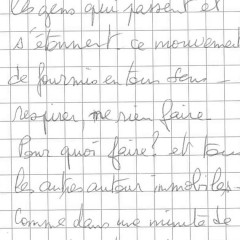 les gens qui passent et
s'étonnent ce mouvement
de fourmis en tous sens
respirer ne rien faire
Pour quoi faire? et tou
les autres autour immobiles
comme dans une minute de